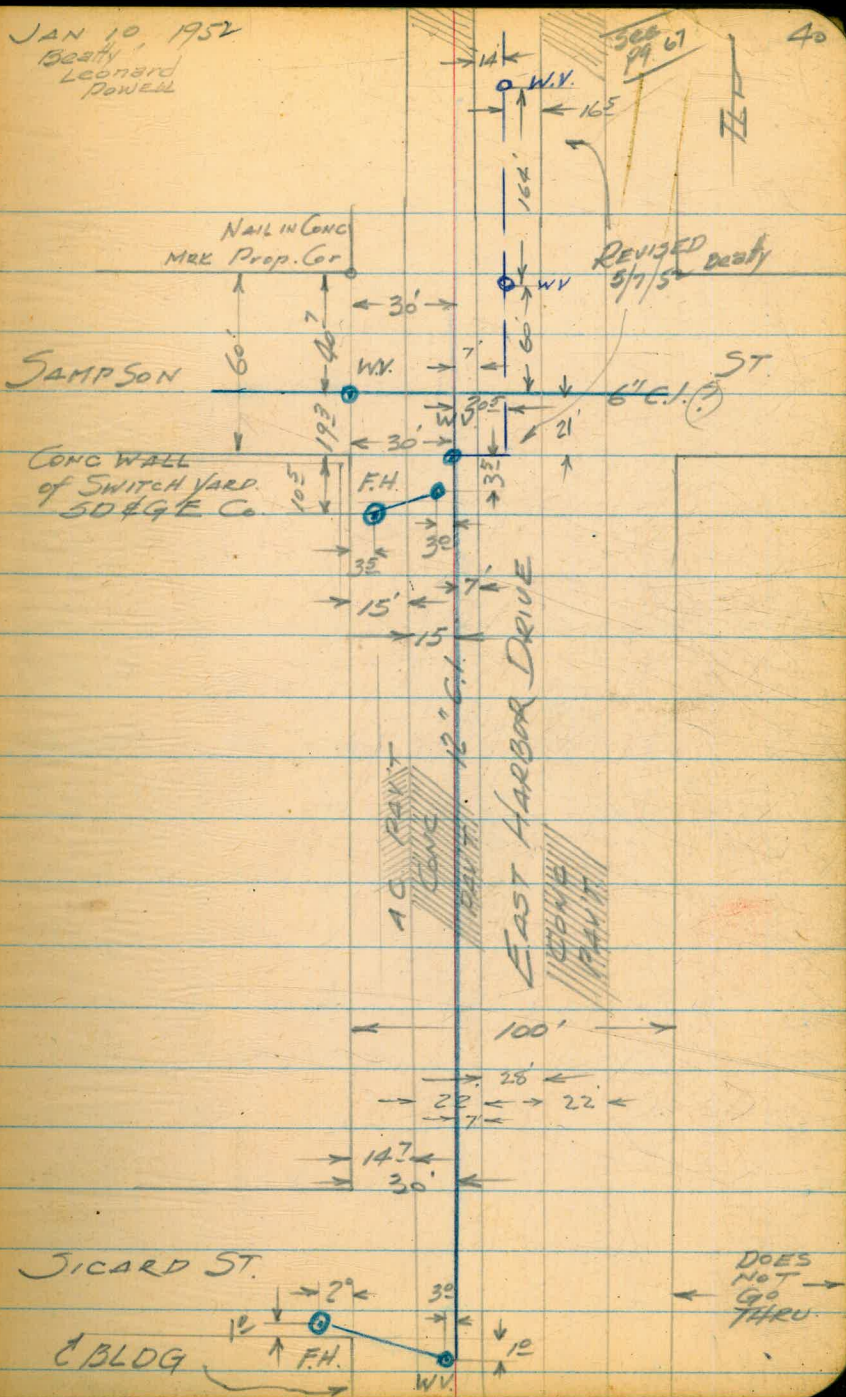 JAN 10 1952
Beatty
Leonard
Powell
See
Pg 67
40
14'
W.V.
16⁵
164'
NAIL IN CONC
MRK Prop. Cor
REVISED
5/7/52 Beatty
W.V
30'
60'
40⁷
60'
7'
W.V.
SAMPSON
ST.
6" C.I. ?
20⁵
19³
30'
21'
CONC WALL
of SWITCH YARD.
SD&GE Co.
10⁵
F.H.
3⁵
3⁰
3⁵
7'
15'
15
12" C.I.
EAST HARBOR DRIVE
AC PAV'T
CONC
PAV'T
CONC
PAV'T
100'
28'
22
22'
7'
14⁷
30'
SICARD ST.
DOES
NOT
GO
THRU.
2⁰
3⁰
1⁰
BLDG
F.H.
1⁰
W.V.